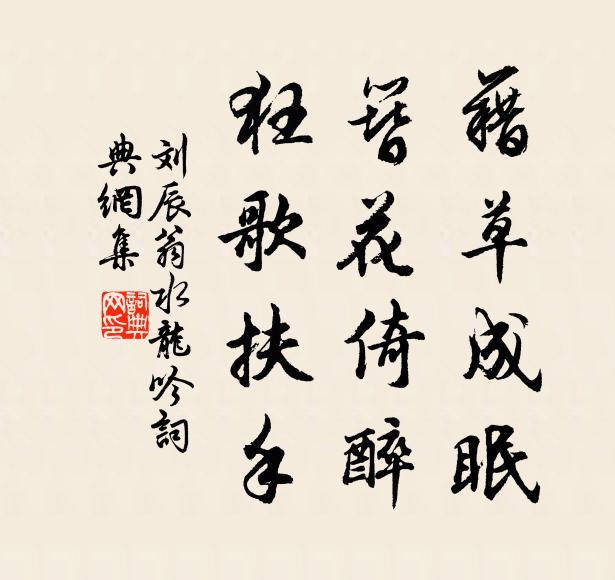 藉草成眠
簪花倚醉
狂歌扶手
刘辰翁水龍吟詞
典網集
詞典網印